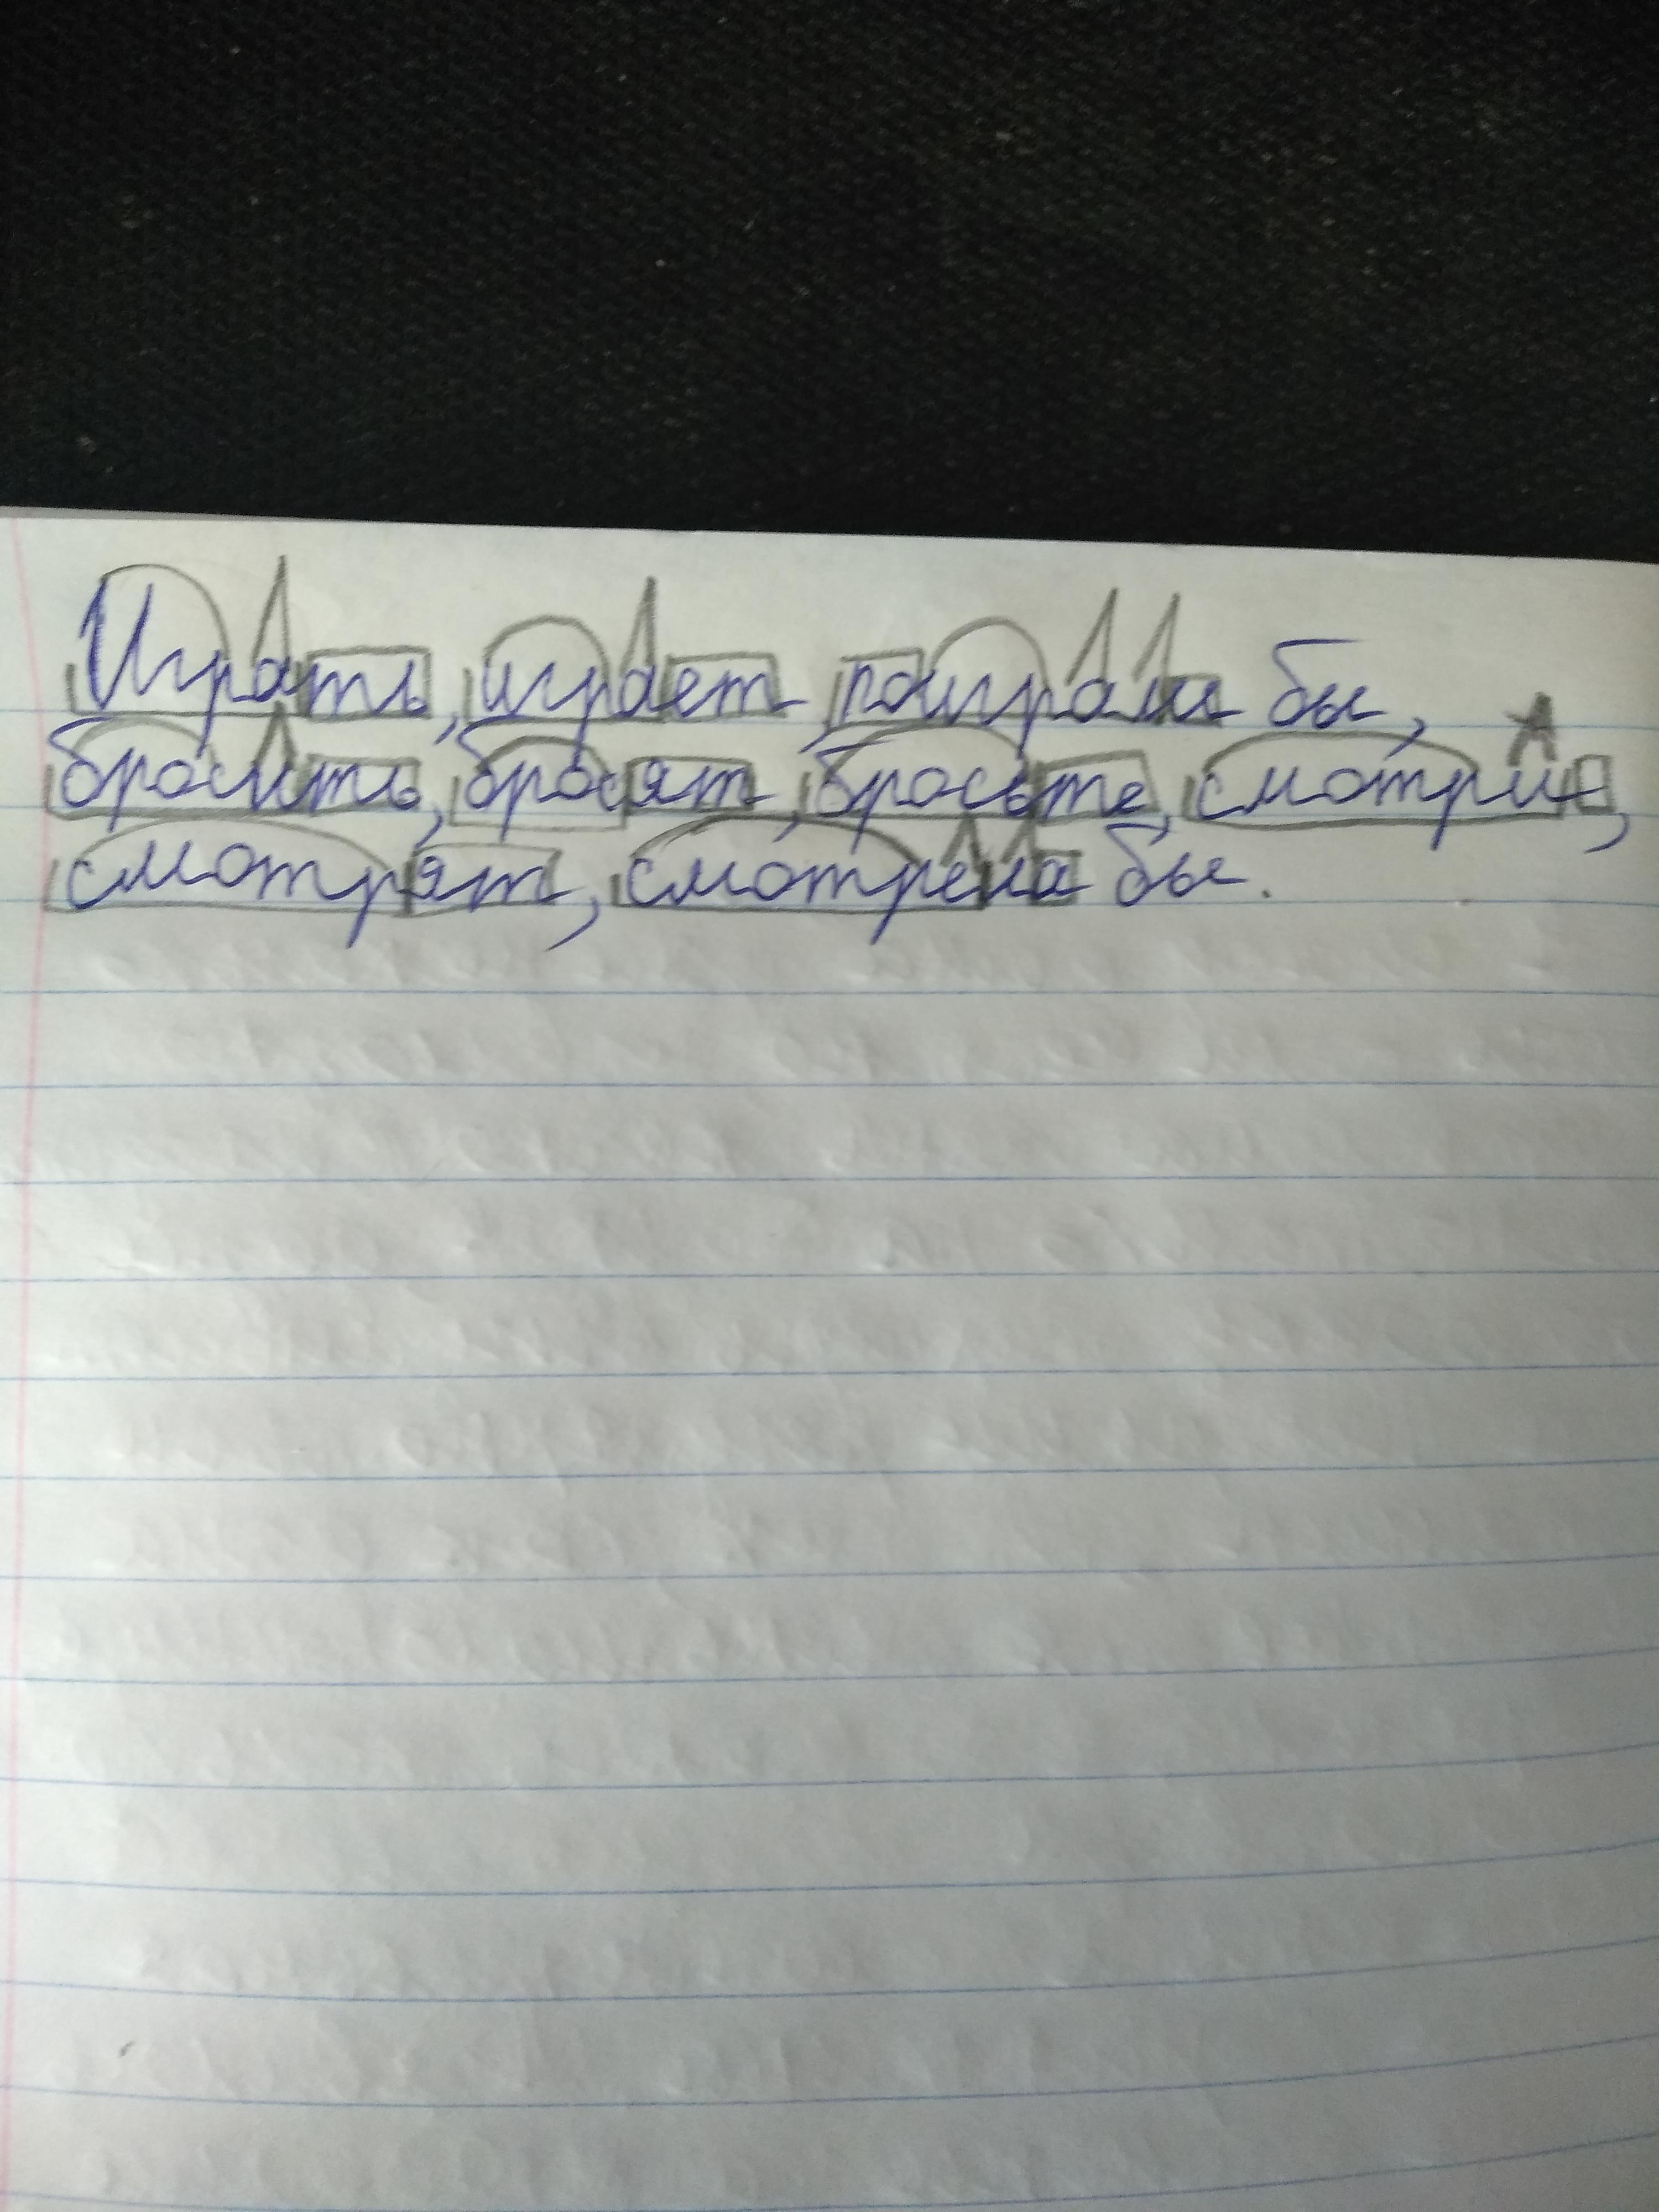 Играть, играет, поиграли бы,
бросить, бросят, бросьте, смотри,
смотрят, смотрела бы.